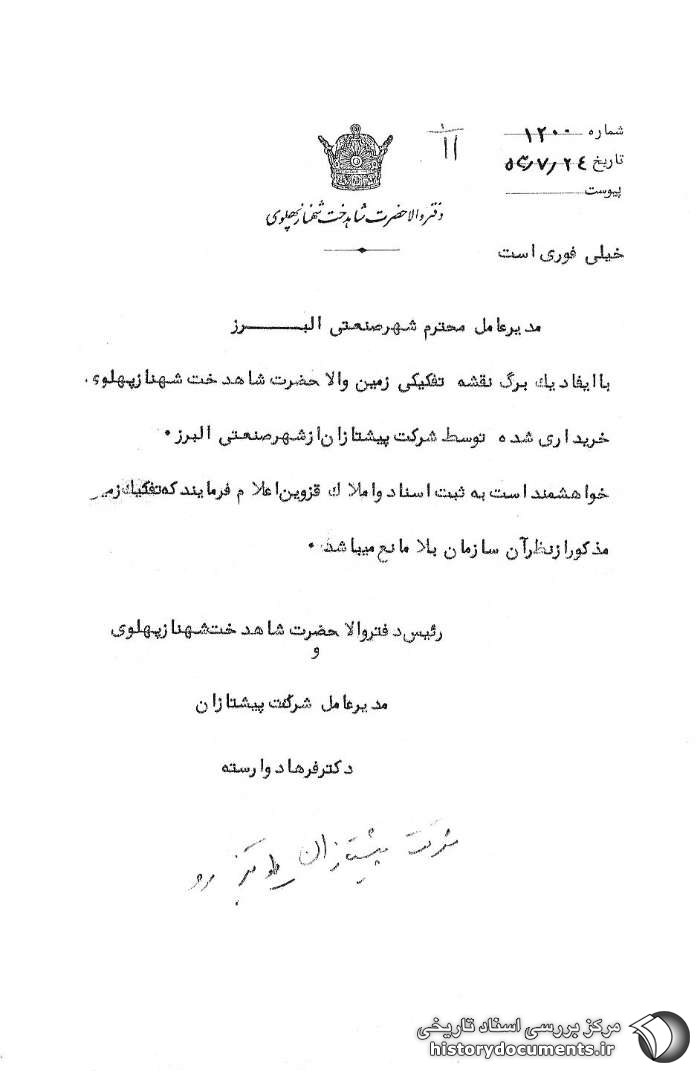 شماره ۱۲۰۰
تاریخ ۵۴/۷/۲۴
پیوست
۱/۱۱
دفتر والاحضرت شاهدخت شهناز پهلوی
خیلی فوری است
مدیرعامل محترم شهر صنعتی البـــــرز
با ایفاد یک برگ نقشه تفکیکی زمین والاحضرت شاهدخت شهناز پهلوی.
خریداری شده توسط شرکت پیشتازان از شهر صنعتی البرز.
خواهشمند است به ثبت اسناد و املاک قزوین اعلام فرمایند که تفکیک زمین
مذکور از نظر آن سازمان بلامانع میباشد.
رئیس دفتر والاحضرت شاهدخت شهناز پهلوی
و
مدیرعامل شرکت پیشتازان
دکتر فرهاد وارسته
شرکت پیشتازان
مرکز بررسی اسناد تاریخی
historydocuments.ir